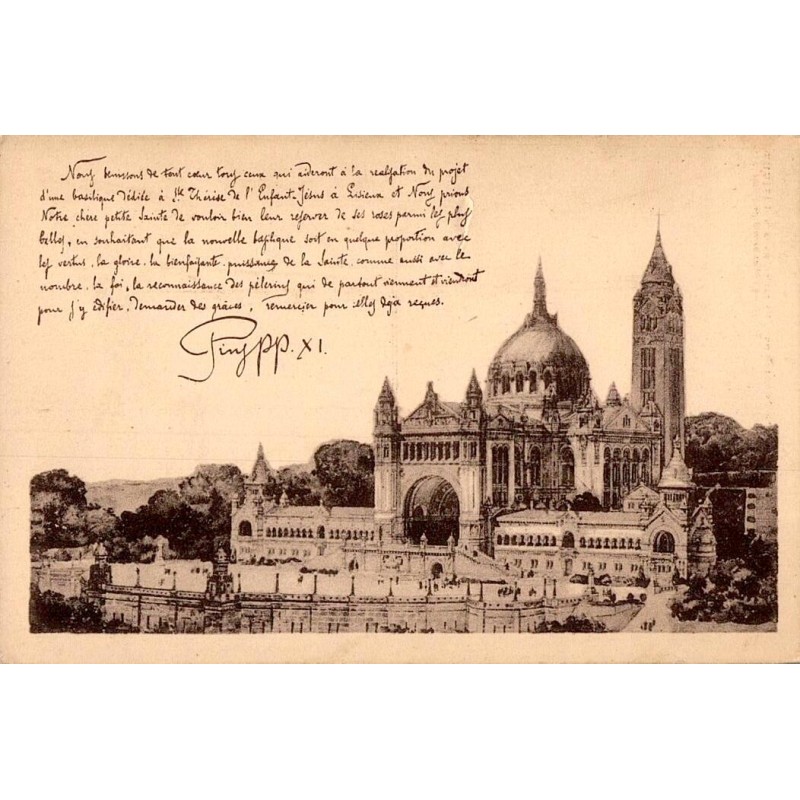 Nous benissons de tout cœur tous ceux qui aideront à la realisation du projet
d'une basilique dédiée à Ste Thérèse de l'Enfant-Jésus à Lisieux et Nous prions
Notre chere petite Sainte de vouloir bien leur reserver de ses roses parmi les plus
belles, en souhaitant que la nouvelle basilique soit en quelque proportion avec
les vertus, la gloire, la bienfaisante puissance de la Sainte, comme aussi avec le
nombre, la foi, la reconnaissance des pèlerins qui de partout viennent et viendront
pour s'y édifier, demander des grâces, remercier pour elles déjà reçues.
Pius PP. XI.